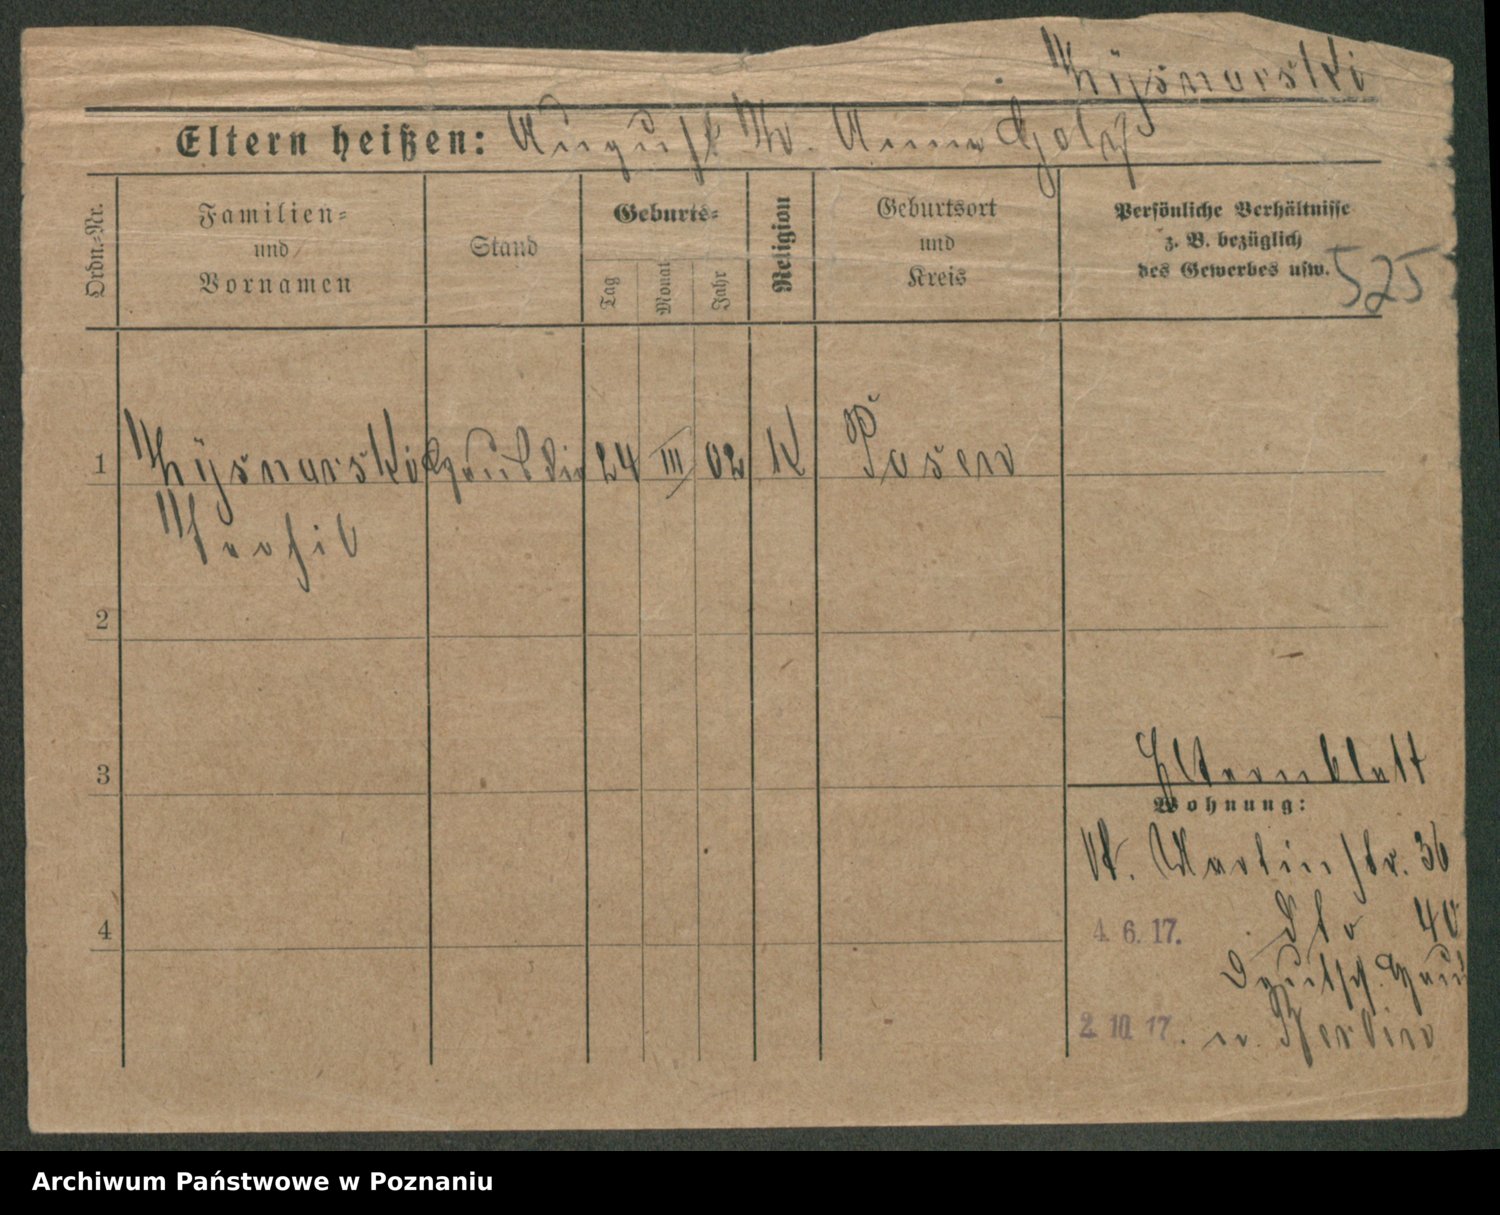 Eltern heißen: August W. Anna Golz
Ordn.-Nr.
Familien-
und
Vornamen
Stand
Geburts-
Tag
Monat
Jahr
Religion
Geburtsort
und
Kreis
Persönliche Verhältnisse
z. B. bezüglich
des Gewerbes usw.
525
1
24 III 02 K Posen
Teofil
2
3
Elternblatt
Wohnung:
St. Martinstr. 36
4
4. 6. 17. dto 40
Deutsch.
2. 10. 17. n. Berlin
Archiwum Państwowe w Poznaniu